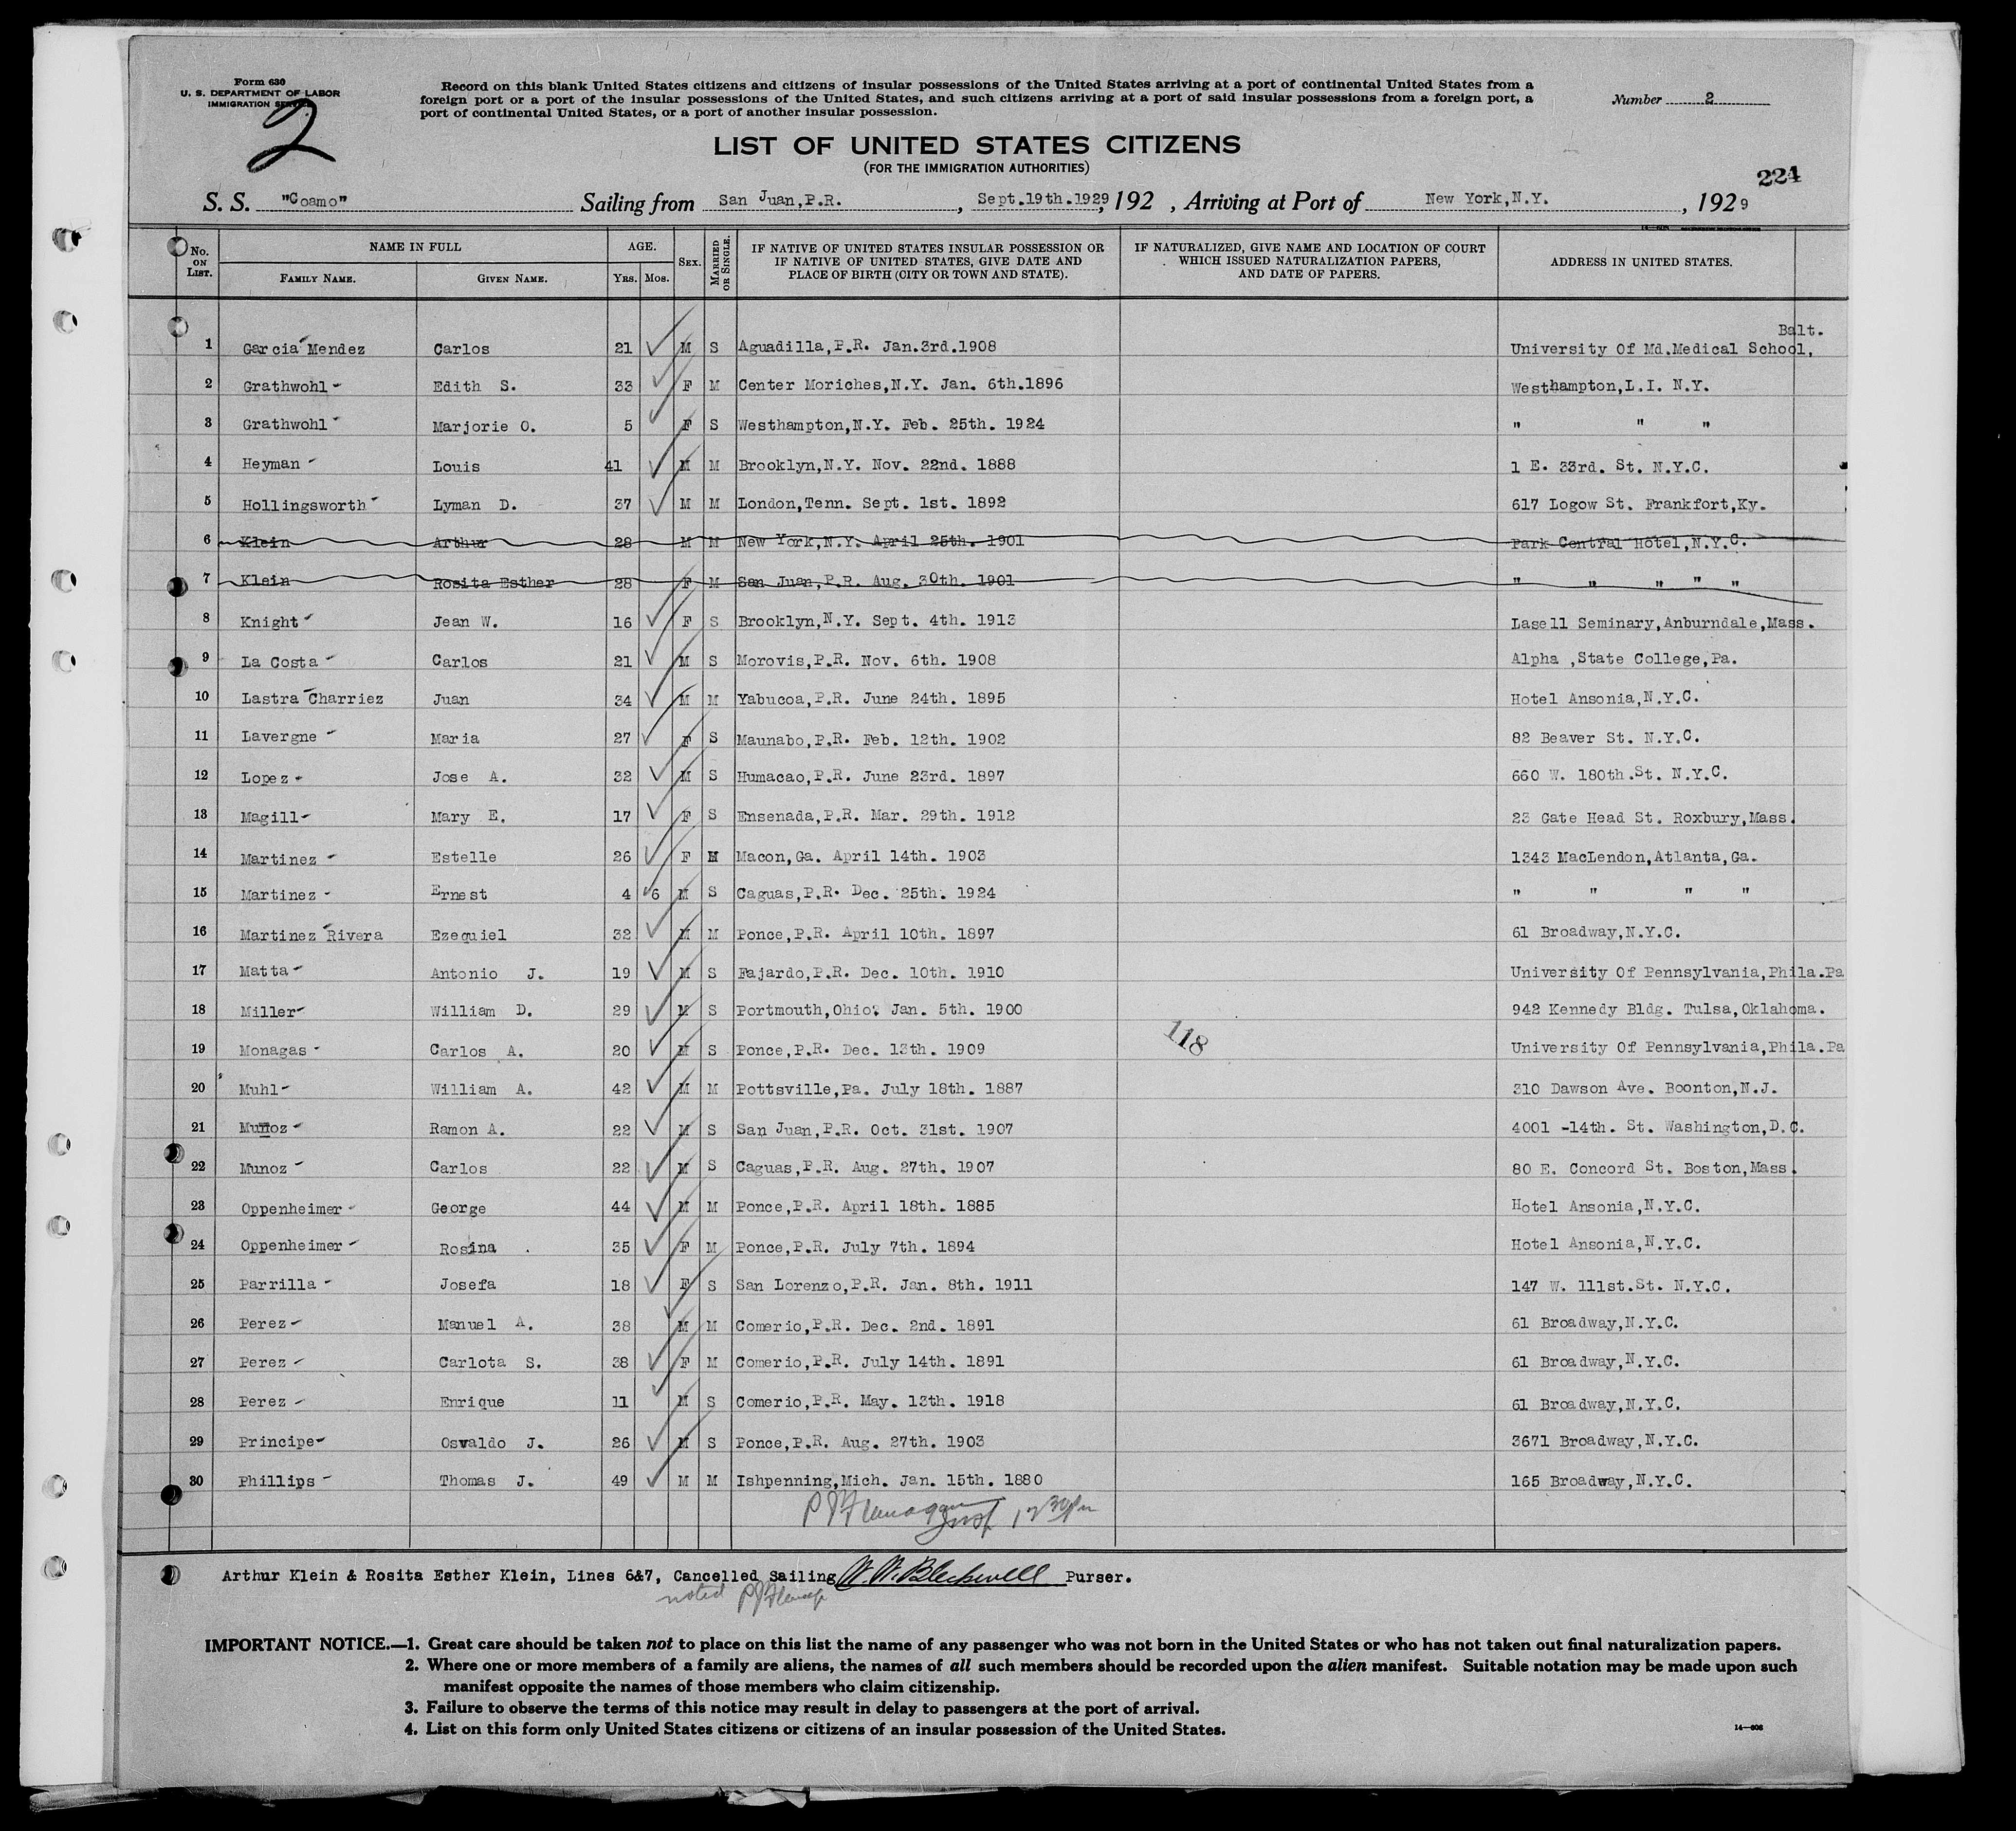 Form 630
U. S. DEPARTMENT OF LABOR
IMMIGRATION SERVICE
2
Record on this blank United States citizens and citizens of insular possessions of the United States arriving at a port of continental United States from a
foreign port or a port of the insular possessions of the United States, and such citizens arriving at a port of said insular possessions from a foreign port, a
port of continental United States, or a port of another insular possession.
Number 2
LIST OF UNITED STATES CITIZENS
(FOR THE IMMIGRATION AUTHORITIES)
224
S. S. "Coamo" Sailing from San Juan,P.R. , Sept.19th.1929, 192 , Arriving at Port of New York,N.Y. , 1929
No. ON LIST. NAME IN FULL FAMILY NAME. GIVEN NAME. AGE. YRS. MOS. SEX. MARRIED OR SINGLE. IF NATIVE OF UNITED STATES INSULAR POSSESSION OR IF NATIVE OF UNITED STATES, GIVE DATE AND PLACE OF BIRTH (CITY OR TOWN AND STATE). IF NATURALIZED, GIVE NAME AND LOCATION OF COURT WHICH ISSUED NATURALIZATION PAPERS, AND DATE OF PAPERS. ADDRESS IN UNITED STATES.
Balt.
1 Garcia Mendez Carlos 21 M S Aguadilla,P.R. Jan.3rd.1908 University Of Md.Medical School,
2 Grathwohl Edith S. 33 F M Center Moriches,N.Y. Jan. 6th.1896 Westhampton,L.I. N.Y.
3 Grathwohl Marjorie O. 5 F S Westhampton,N.Y. Feb. 25th. 1924 " " "
4 Heyman Louis 41 M M Brooklyn,N.Y. Nov. 22nd. 1888 1 E. 33rd. St. N.Y.C.
5 Hollingsworth Lyman D. 37 M M London,Tenn. Sept. 1st. 1892 617 Logow St. Frankfort,Ky.
6 Klein Arthur 28 M M New York,N.Y. April 25th. 1901 Park Central Hotel,N.Y.C.
7 Klein Rosita Esther 28 F M San Juan,P.R. Aug. 30th. 1901 " " " " "
8 Knight Jean W. 16 F S Brooklyn,N.Y. Sept. 4th. 1913 Lasell Seminary,Anburndale,Mass.
9 La Costa Carlos 21 M S Morovis,P.R. Nov. 6th. 1908 Alpha ,State College,Pa.
10 Lastra Charriez Juan 34 M M Yabucoa,P.R. June 24th. 1895 Hotel Ansonia,N.Y.C.
11 Lavergne Maria 27 F S Maunabo,P.R. Feb. 12th. 1902 82 Beaver St. N.Y.C.
12 Lopez Jose A. 32 M S Humacao,P.R. June 23rd. 1897 660 W. 180th.St. N.Y.C.
13 Magill Mary E. 17 F S Ensenada,P.R. Mar. 29th. 1912 23 Gate Head St. Roxbury,Mass.
14 Martinez Estelle 26 F M Macon,Ga. April 14th. 1903 1343 MacLendon,Atlanta,Ga.
15 Martinez Ernest 4 6 M S Caguas,P.R. Dec. 25th. 1924 " " " "
16 Martinez Rivera Ezequiel 32 M M Ponce,P.R. April 10th. 1897 61 Broadway,N.Y.C.
17 Matta Antonio J. 19 M S Fajardo,P.R. Dec. 10th. 1910 University Of Pennsylvania,Phila.Pa
18 Miller William D. 29 M S Portmouth,Ohio. Jan. 5th. 1900 942 Kennedy Bldg. Tulsa,Oklahoma.
19 Monagas Carlos A. 20 M S Ponce,P.R. Dec. 13th. 1909 118 University Of Pennsylvania,Phila.Pa
20 Muhl William A. 42 M M Pottsville,Pa. July 18th. 1887 310 Dawson Ave. Boonton,N.J.
21 Munoz Ramon A. 22 M S San Juan,P.R. Oct. 31st. 1907 4001 -14th. St. Washington,D.C.
22 Munoz Carlos 22 M S Caguas,P.R. Aug. 27th. 1907 80 E. Concord St. Boston,Mass.
23 Oppenheimer George 44 M M Ponce,P.R. April 18th. 1885 Hotel Ansonia,N.Y.C.
24 Oppenheimer Rosina 35 F M Ponce,P.R. July 7th. 1894 Hotel Ansonia,N.Y.C.
25 Parrilla Josefa 18 F S San Lorenzo,P.R. Jan. 8th. 1911 147 W. 111st.St. N.Y.C.
26 Perez Manuel A. 38 M M Comerio,P.R. Dec. 2nd. 1891 61 Broadway,N.Y.C.
27 Perez Carlota S. 38 F M Comerio,P.R. July 14th. 1891 61 Broadway,N.Y.C.
28 Perez Enrique 11 M S Comerio,P.R. May. 13th. 1918 61 Broadway,N.Y.C.
29 Principe Osvaldo J. 26 M S Ponce,P.R. Aug. 27th. 1903 3671 Broadway,N.Y.C.
30 Phillips Thomas J. 49 M M Ishpenning,Mich. Jan. 15th. 1880 165 Broadway,N.Y.C.
P J Flanagan Insp
Arthur Klein & Rosita Esther Klein, Lines 6&7, Cancelled Sailing W. W. Blackwell Purser.
noted
IMPORTANT NOTICE.—1. Great care should be taken not to place on this list the name of any passenger who was not born in the United States or who has not taken out final naturalization papers.
2. Where one or more members of a family are aliens, the names of all such members should be recorded upon the alien manifest. Suitable notation may be made upon such
manifest opposite the names of those members who claim citizenship.
3. Failure to observe the terms of this notice may result in delay to passengers at the port of arrival.
4. List on this form only United States citizens or citizens of an insular possession of the United States.
14—606